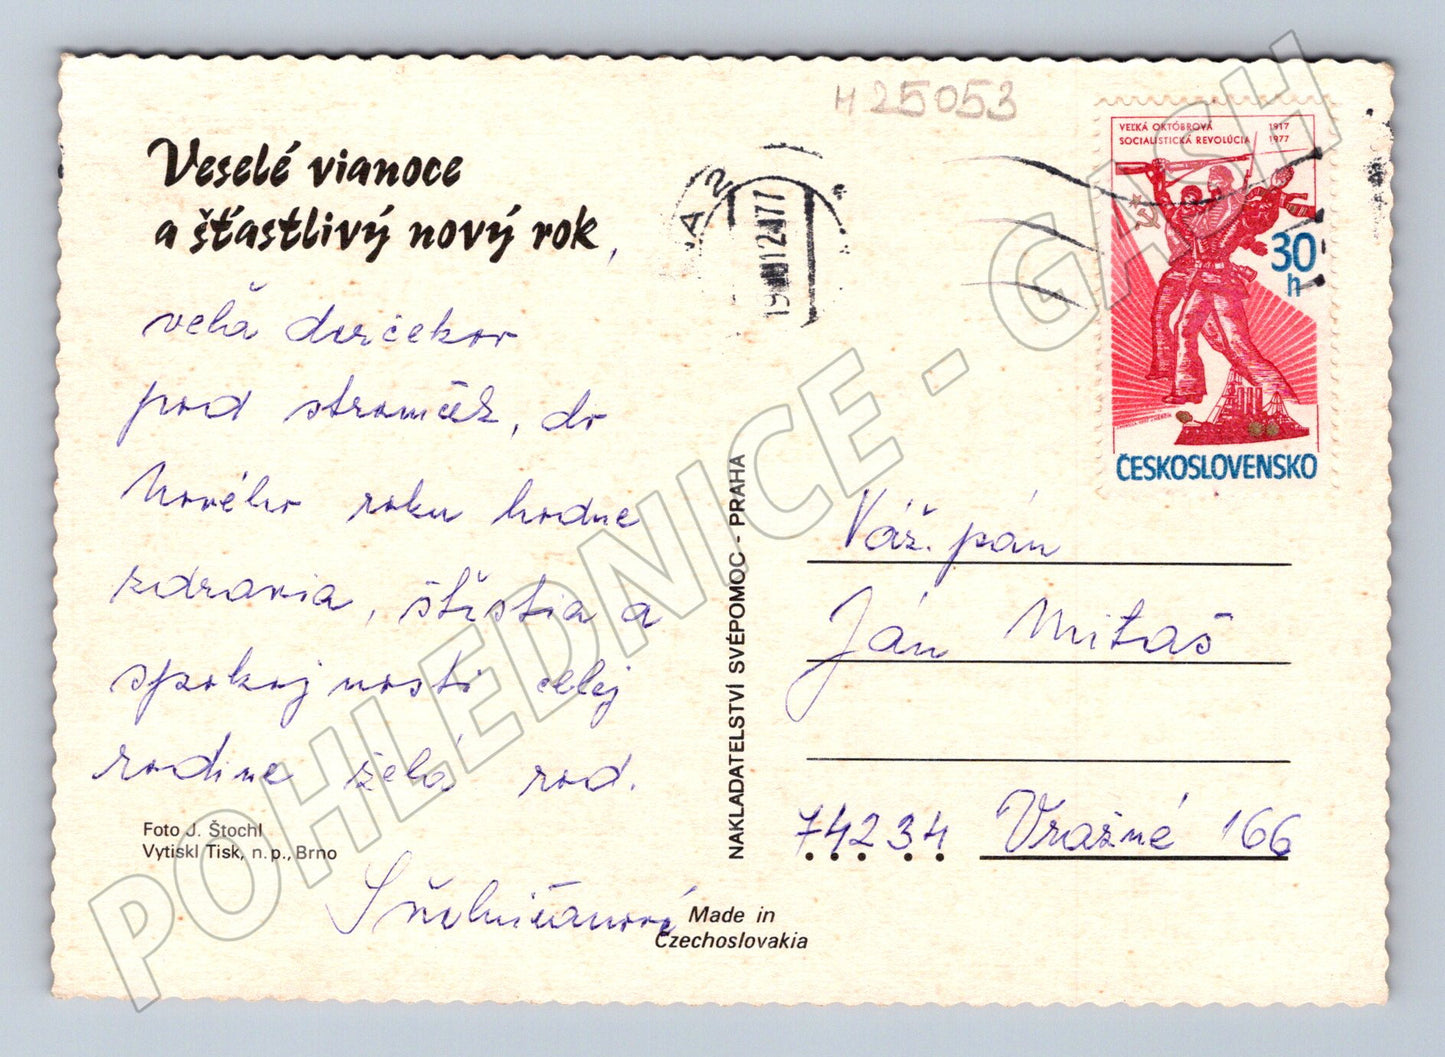 H 25053
Veselé vianoce
a šťastlivý nový rok,
veľa darčekov
pod stromček, do
Nového roku hodne
zdravia, šťestia a
spokojnosti celej
rodine želá rod.
Foto J. Štochl
Vytiskl Tisk, n.p., Brno
NAKLADATELSTVÍ SVÉPOMOC - PRAHA
Made in
Czechoslovakia
VEĽKÁ OKTÓBROVÁ
SOCIALISTICKÁ REVOLÚCIA
1917
1977
30
h
ČESKOSLOVENSKO
Váž. pán
Ján Mitaš
74234 Vražné 166
POHLEDNICE - GASH